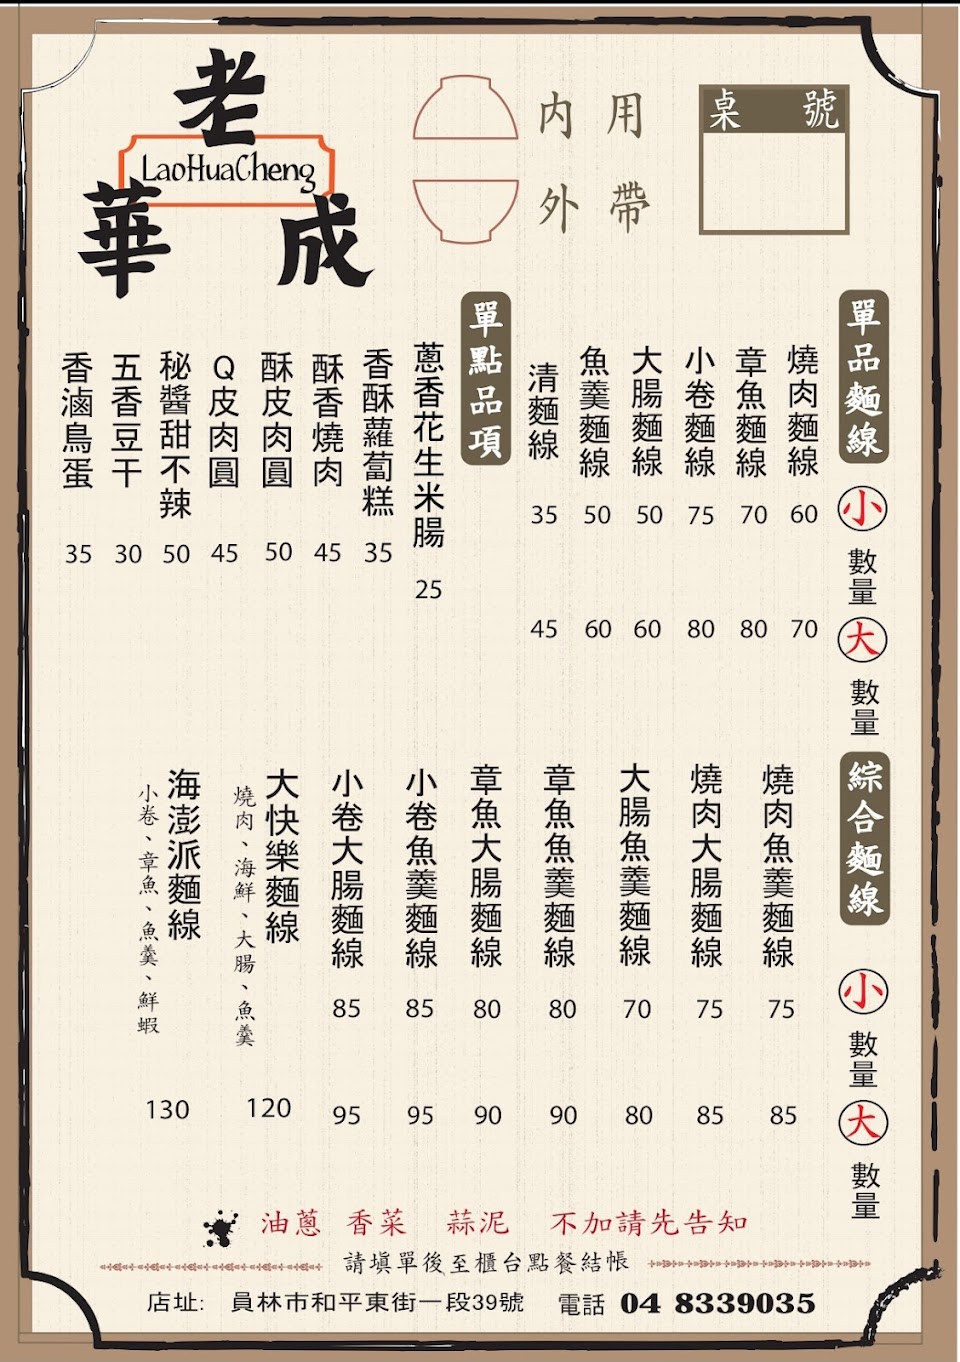 老華成
LaoHuaCheng
內用
外帶
桌號
單品麵線
小 數量 大 數量
燒肉麵線 60 70
章魚麵線 70 80
小卷麵線 75 80
大腸麵線 50 60
魚羹麵線 50 60
清麵線 35 45
單點品項
蔥香花生米腸 25
香酥蘿蔔糕 35
酥香燒肉 45
酥皮肉圓 50
Q皮肉圓 45
秘醬甜不辣 50
五香豆干 30
香滷鳥蛋 35
綜合麵線
小 數量 大 數量
燒肉魚羹麵線 75 85
燒肉大腸麵線 75 85
大腸魚羹麵線 70 80
章魚魚羹麵線 80 90
章魚大腸麵線 80 90
小卷魚羹麵線 85 95
小卷大腸麵線 85 95
大快樂麵線 120
燒肉、海鮮、大腸、魚羹
海澎派麵線 130
小卷、章魚、魚羹、鮮蝦
油蔥 香菜 蒜泥 不加請先告知
請填單後至櫃台點餐結帳
店址: 員林市和平東街一段39號 電話 04 8339035